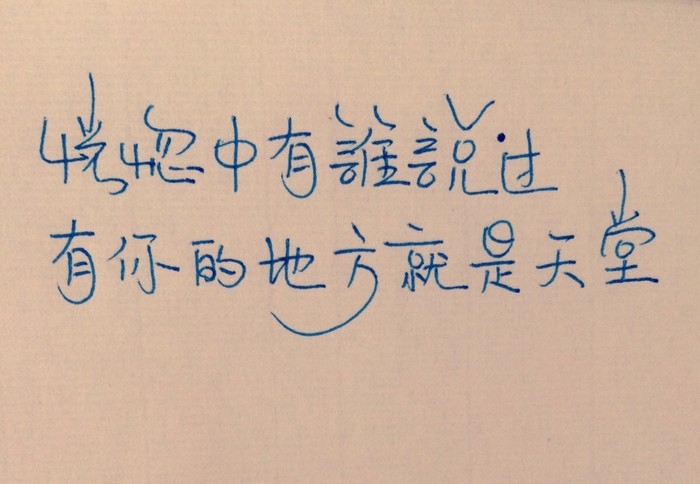 恍惚中有誰說过
有你的地方就是天堂